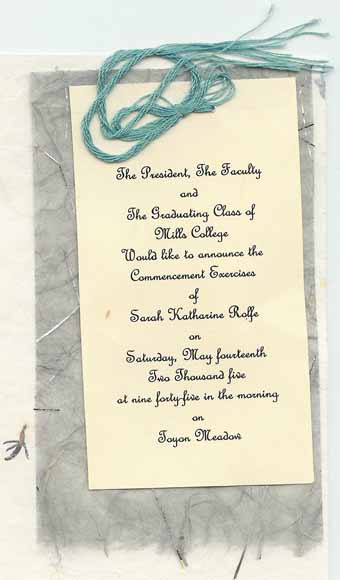 The President, The Faculty
and
The Graduating Class of
Mills College
Would like to announce the
Commencement Exercises
of
Sarah Katharine Rolfe
on
Saturday, May fourteenth
Two Thousand five
at nine forty-five in the morning
on
Toyon Meadow